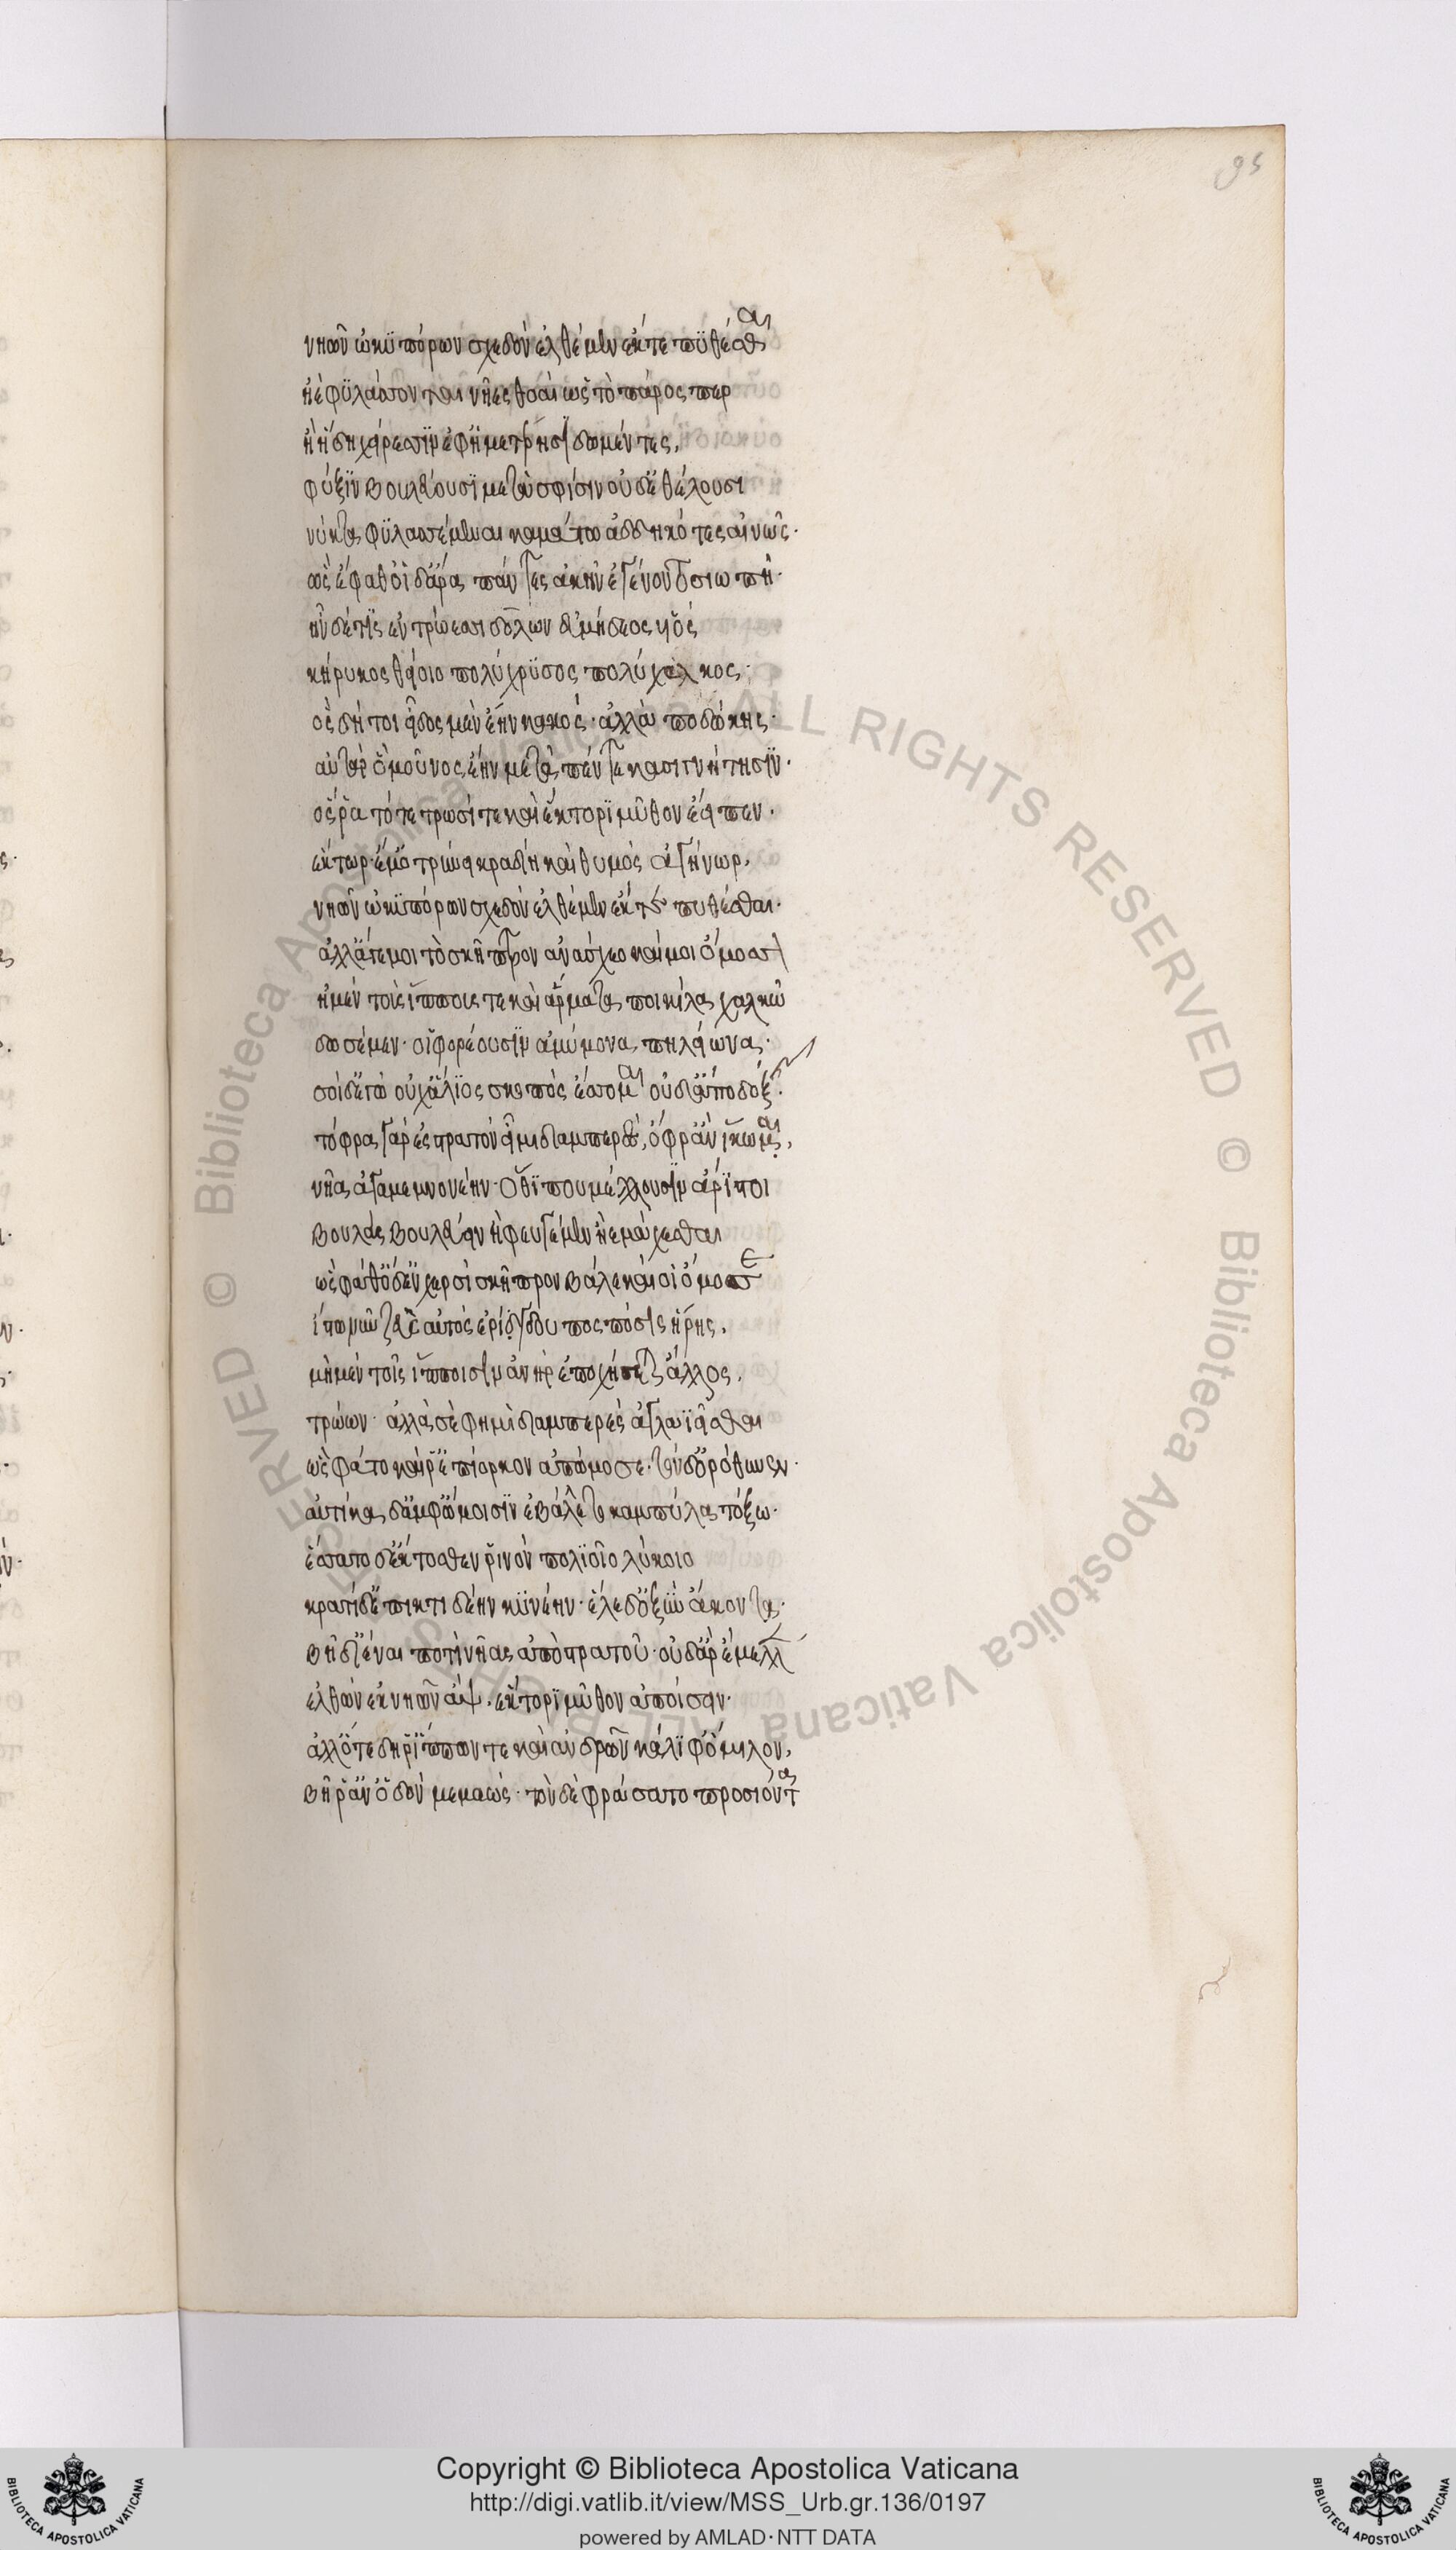 95
νηῶν ὠκϋπόρων σχεδὸν ἐλθέμεν ἔκ τε πϋθέσθαι
ἠὲ φϋλάσσονται νῆες θοαὶ ὡς τὸ πάρος περ
ἢ ἤδη χείρεσσϊν ὑφ' ἡμετέρησϊ δαμέντες,
φύξϊν βουλεύουσϊ μετὰ σφίσιν οὐδ' ἐθέλουσι
νύκτα φϋλασσέμεναι καμάτω ἀδδηκότες αἰνῶς·
ὣς ἔφαθ' οἱ δ' ἄρα πάντες ἀκὴν ἐγένοντο σιωπῆ·
ἦν δέ τϊς ἐν τρώεσσι δόλων εὐμήδεος υἱός
κήρυκος θείοιο πολύχρϋσος πολύχαλκος·
ὃς δή τοι εἶδος μὲν ἔην κακός· ἀλλὰ ποδώκης·
αὐτὰρ ὃ μοῦνος ἔην μετὰ πέντε κασιγνήτησϊν·
ὅς ῥα τότε τρωσί τε καὶ ἕκτορϊ μῦθον ἔειπεν·
ἕκτωρ ἔμ' ὀτρύνει κραδίη καὶ θυμὸς ἀγήνωρ,
νηῶν ὠκϋπόρων σχεδὸν ἐλθέμεν ἔκ τε πυθέσθαι·
ἀλλ' ἄγε μοι τὸ σκῆπτρον ἀνάσχεο καί μοι ὄμοσσον
ἦ μὲν τοὺς ἵππους τε καὶ ἅρματα ποικίλα χαλκῶ
δωσέμεν· οἳ φορέουσϊν ἀμύμονα πηλείωνα·
σοὶ δ' ἐγὼ οὐχ' ἅλϊος σκοπὸς ἔσσομαι οὐδ' ἀπὸ δόξης·
τόφρα γὰρ ἐς στρατὸν εἶμι διαμπερές, ὄφρ' ἂν ἵκωμαι,
νῆα ἀγαμεμνονέην· ὅθϊ που μέλλουσϊν ἄρϊστοι
βουλὰς βουλεύειν ἢ φευγέμεν ἠὲ μάχεσθαι
ὣς φάθ' ὃ δ' ἐν χερσὶ σκῆπτρον βάλε καί οἱ ὄμοσσε
ἴστω νῦν ζεὺς αὐτὸς ἐρίγδουπος πόσϊς ἥρης,
μὴ μὲν τοῖς ἵπποισϊν ἀνὴρ ἐποχήσεται ἄλλος,
τρώων· ἀλλὰ σέ φημι διαμπερὲς ἀγλαϊεῖσθαι
ὣς φάτο καί ῥ' ἐπίορκον ἀπώμοσε· τὸν δ' ὀρόθυνεν·
αὐτίκα δ' ἀμφ' ὤμοισϊν ἐβάλετο καμπύλα τόξα·
ἕσσατο δ' ἔκτοσθεν ῥινὸν πολϊοῖο λύκοιο
κρατὶ δ' ἐπὶ κτιδέην κϋνέην· ἕλε δ' ὀξὺν ἄκοντα·
βῆ δ' ἰέναι ποτὶ νῆας ἀπὸ στρατοῦ· οὐδ' ἄρ' ἔμελλεν
ἐλθὼν ἐκ νηῶν ἂψ, ἕκτορϊ μῦθον ἀποίσειν·
ἀλλ' ὅτε δή ῥ' ἵππων τε καὶ ἀνδρῶν κάλϊφ' ὅμιλον,
βῆ ῥ' ἀν' ὁδὸν μεμαώς· τὸν δὲ φράσατο προσιόντα
Copyright © Biblioteca Apostolica Vaticana
http://digi.vatlib.it/view/MSS_Urb.gr.136/0197
powered by AMLAD·NTT DATA